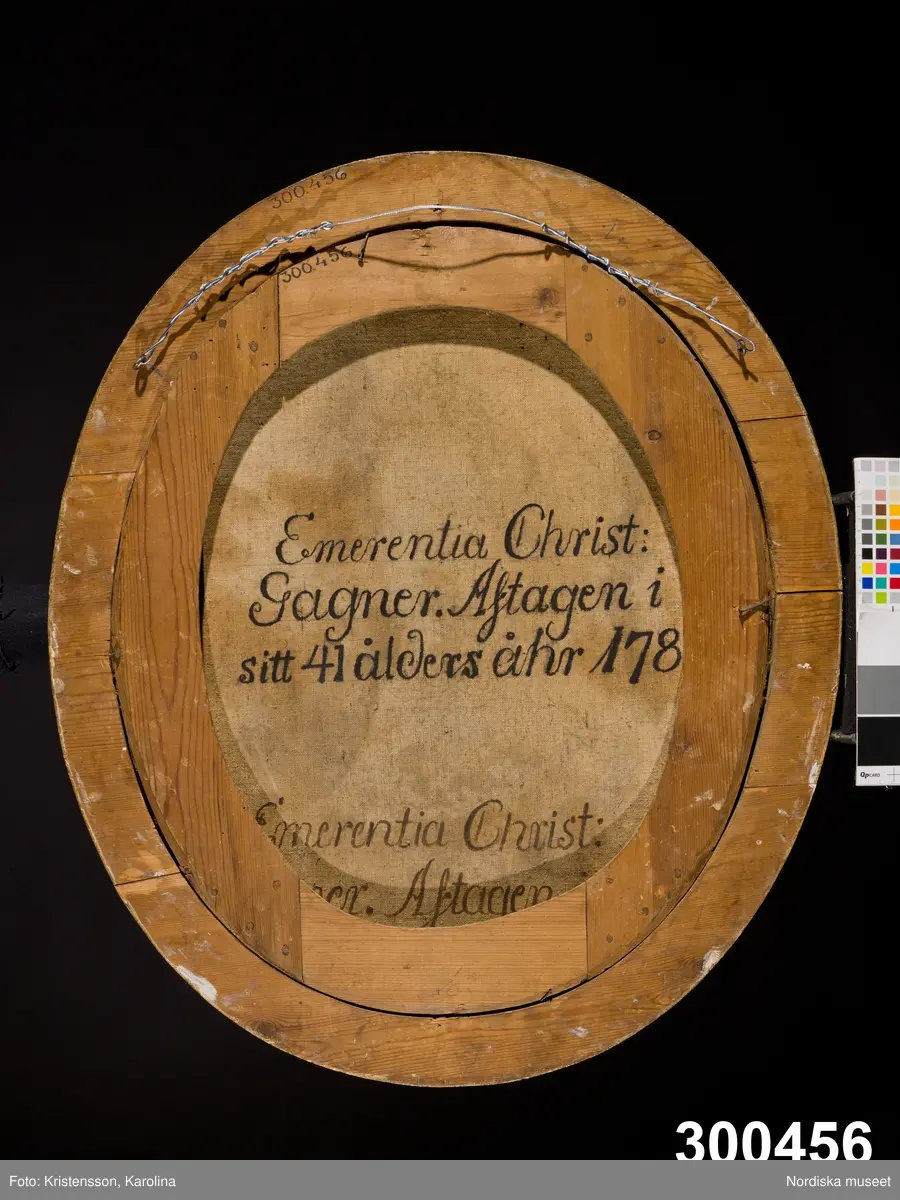 300.456
300.456
Emerentia Christ:
Gagner. Aftagen i
sitt 41 ålders åhr 178
Emerentia Christ:
ner. Aftagen
QPCARD
300456
Foto: Kristensson, Karolina
Nordiska museet